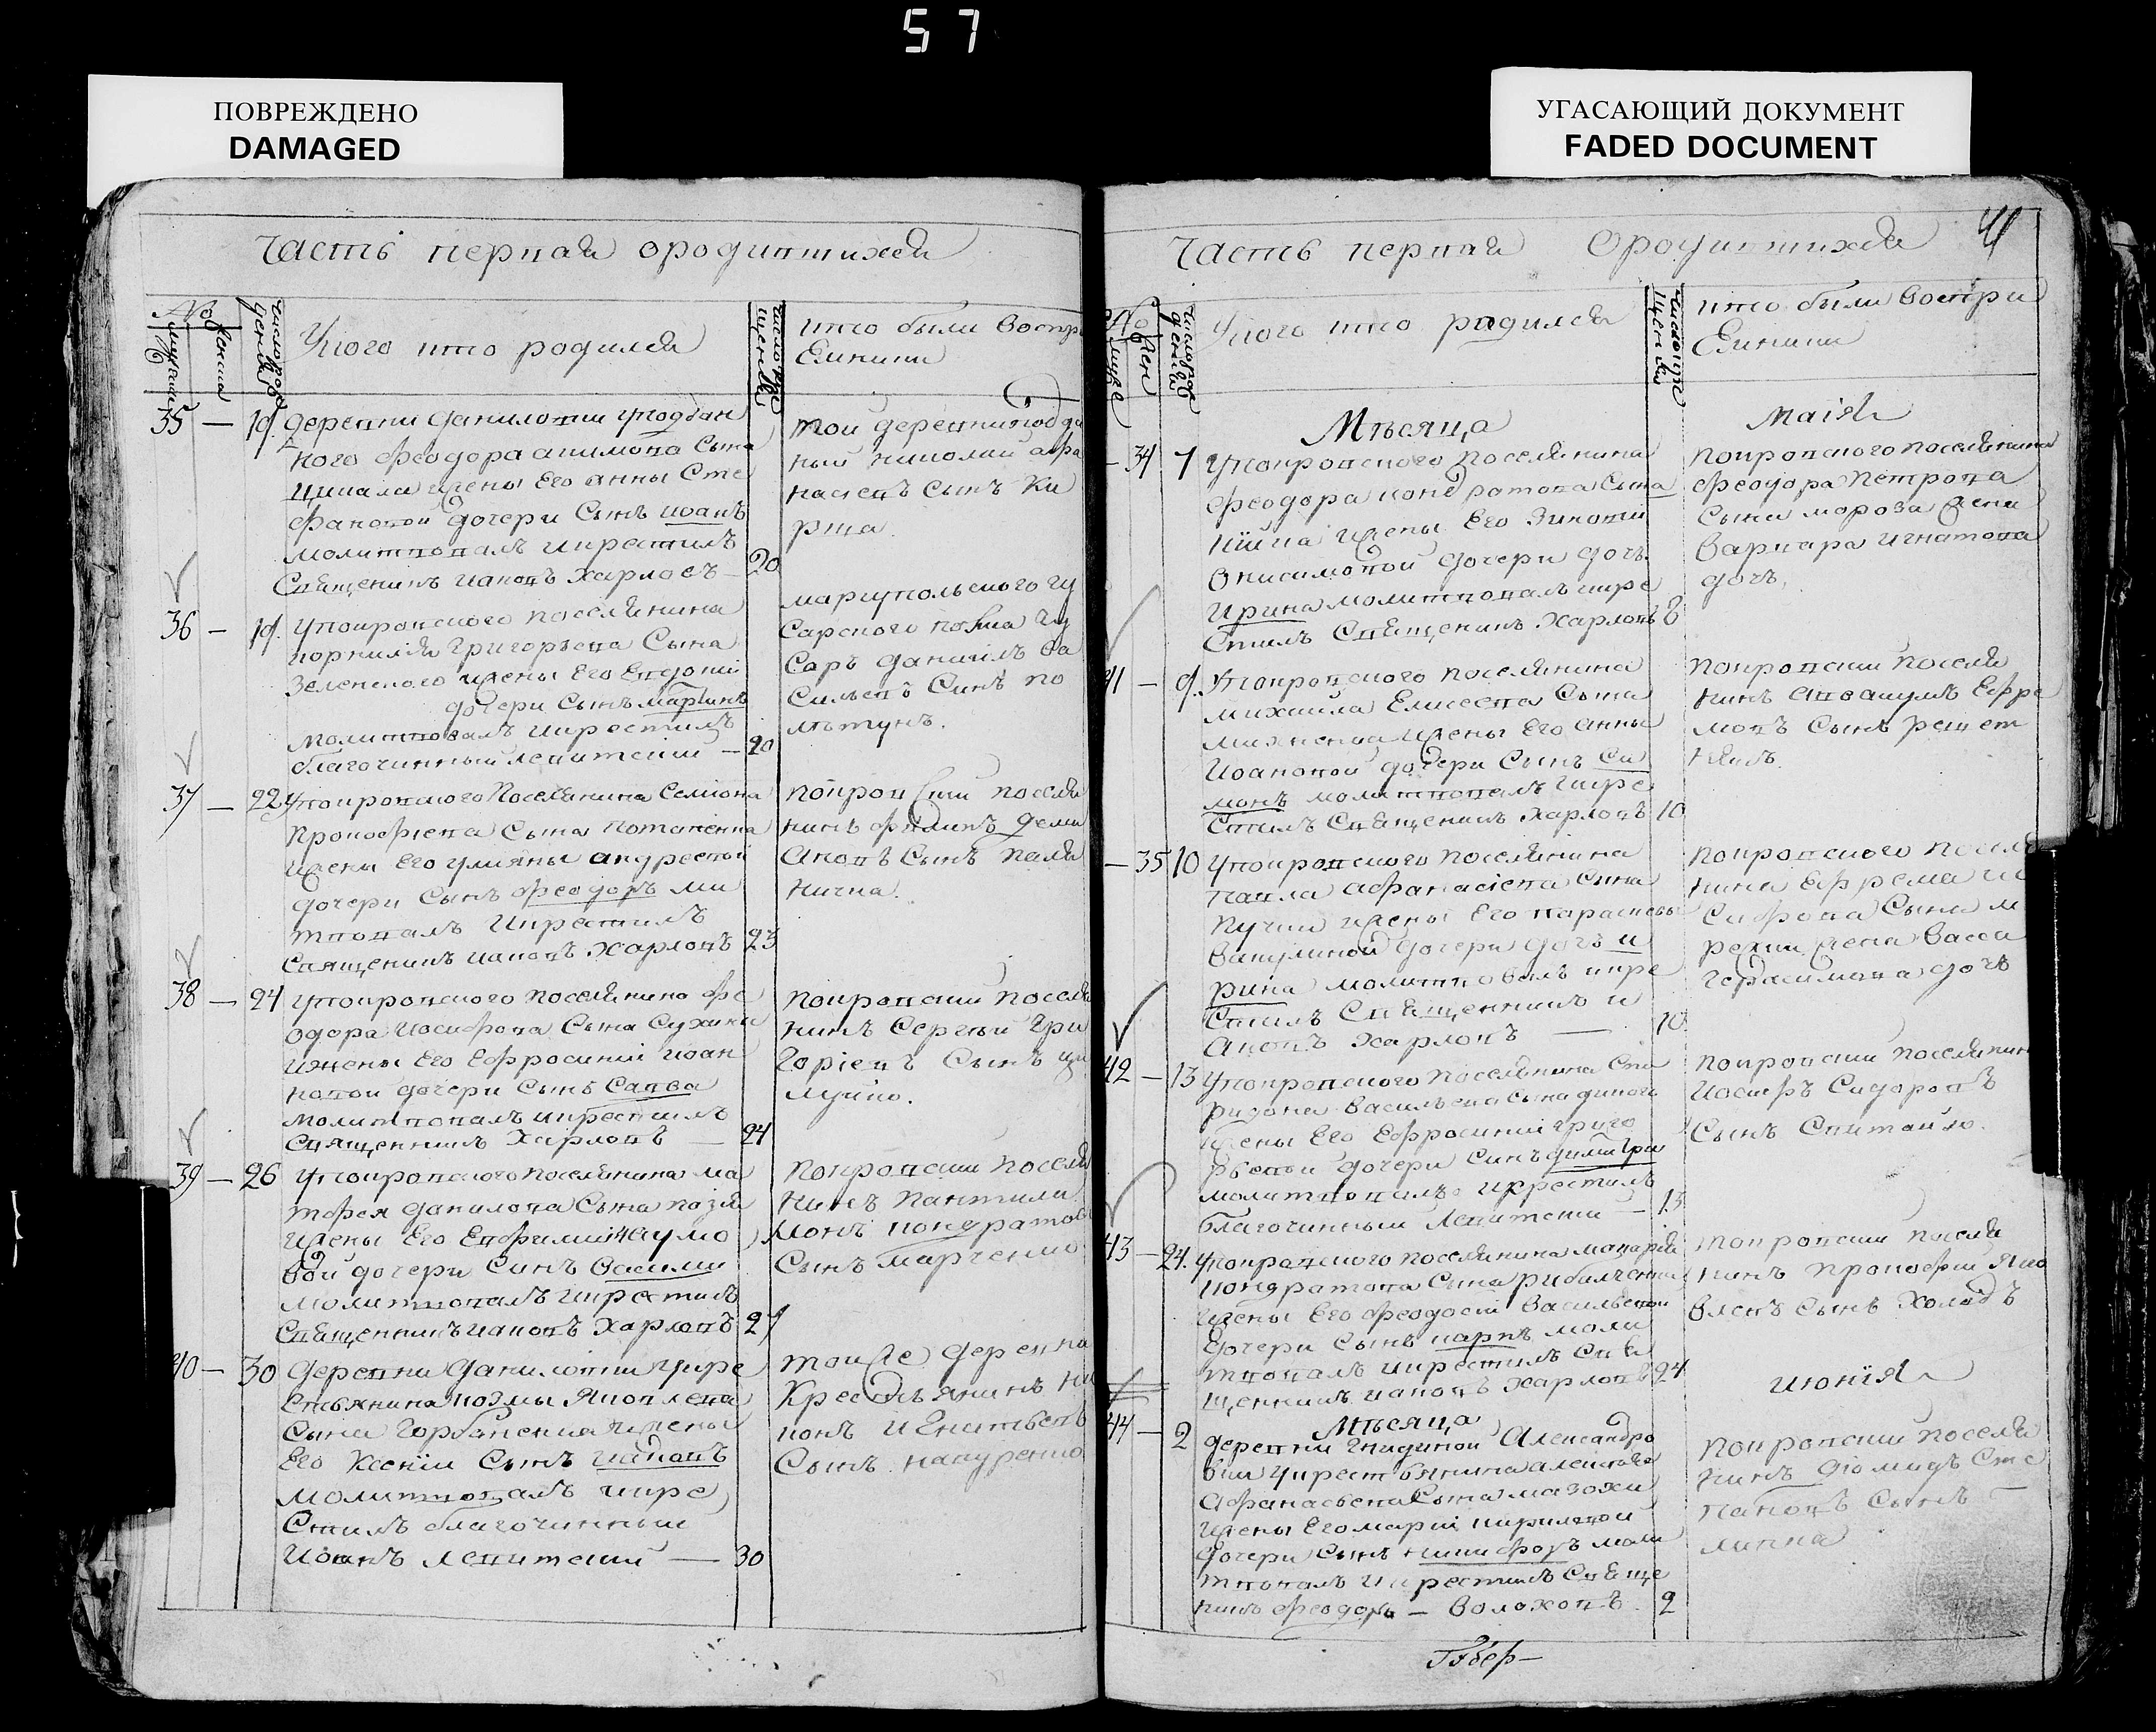 57
ПОВРЕЖДЕНО
DAMAGED
УГАСАЮЩИЙ ДОКУМЕНТ
FADED DOCUMENT
Часть первая ородившихся
№ мужеска женска
число рождения
У кого кто родился
число крещения
кто были воспри
Емники
35 — 19. деревни даниловки уподдан
ного феодора акимова Сына
Цикала жены Его анны Сте
фановой дочери Сынъ иоанъ
молитвовалъ икрестилъ
Священикъ иаковъ Харловъ — 20
той деревни подда
ный николай афа
насиевъ Сынъ Ки
рша.
36 — 19. Упокровского поселянина
корнилія Григорьева Сына
Зеленского жены Его Евдокіи
дочери Сынъ мартинъ
молитвовалъ икрестилъ
благочинный левитский — 20
мариупольского гу
Сарского полка гу
Саръ даниилъ Ва
Сильевъ Сынъ по
летунъ.
37 — 22 Упокровского Поселянина Семиона
Прокофиева Сына потапенка
жены Его улияны андреевой
дочери Сынъ феодоръ мли
твовалъ икрестилъ
Священикъ иаковъ Харловъ 23
покровский поселя
нинъ филипъ Деми
Ановъ Сынъ пали
ничка.
38 — 24 Упокровского поселянина фе
одора иосифова Сына Сухини
ижены Его Ефросиніи иоан
новой дочери Сынъ Савва
молитвовалъ икрестилъ
Священникъ Харловъ — 24
покровский поселя
нинъ Сергѣй Гри
горіевъ Сынъ
39 — 26 Упокровского поселянина ма
тфея данилова Сына
жены Его Евфиміи Наумо
вой дочери Сынъ Василий
молитвовалъ икрестилъ
Священникъ иаковъ Харловъ 27
покровский поселя
нинъ пантили
монъ кондратовъ
Сынъ марченко
40 — 30 деревни даниловки укре
стьянина козмы яковлева
Сына Горбаненка жены
Его Ксеніи Сынъ иаковъ
молитвовалъ икре
стилъ благочинный
Иоанъ левитский — 30
той же деревни
Крестьянинъ ни
конъ игнатьевъ
Сынъ
Часть первая Ородившихся
41
№ муже жен
число рождения
У кого кто родился
число крещения
кто были воспри
Емники
Мѣсяца маія
— 34 7 Упокровского поселянина
феодора кондратова Сына
жены Его Зиновіи
Онисимовой дочери дочь
Ирина молитвовалъ икре
Стилъ Священикъ Харловъ 8
покровского поселянина
феодора петрова
Сына мороза жена
Варвара игнатова
дочь.
41 — 9. Упокровского поселянина
михаила Елисеева Сына
михненка жены Его анны
Иоановой дочери Сынъ Си
монъ молитвовалъ икре
Стилъ Священикъ Харловъ 10
покровский поселя
нинъ аввакумъ Ефре
мовъ Сынъ решет
някъ.
— 35 10 Упокровского поселянина
павла афанасіева Сына
Пучки жены Его параскевы
Вакулиной дочери дочь и
рина молитвовалъ икре
Стилъ Священникъ и
Аковъ Харловъ — 10.
покровского посел
нина Ефрема
Сына
жена Васса
Герасимова дочь
42 — 13 Упокровского поселянина Спи
ридона Васильева Сына дикого
жены Его Ефросиніи григо
рьевой дочери Сынъ димитри
молитвовалъ икрестилъ
благочинный левитский — 13
покровский поселянин
иосифъ Сидоровъ
Сынъ Спитайло.
43 — 24. Упокровского поселянина макарія
кондратова Сына рибалченка
жены Его феодосіи Васильевой
дочери Сынъ карпъ моли
твовалъ икрестилъ Свя
щенникъ иаковъ Харловъ 24
покровский поселя
нинъ прокофий яко
влевъ Сынъ Холодъ
Мѣсяца июнія
44 — 2 деревни Гнидиной Александро
вки укрестьянина алексѣя
Афанасьева Сына мазохи
жены Его маріи кириловой
дочери Сынъ никифоръ моли
твовалъ икрестилъ Свяще
никъ феодоръ — Волоховъ. 2
покровский поселя
нинъ диомидъ Сте
пановъ Сынъ